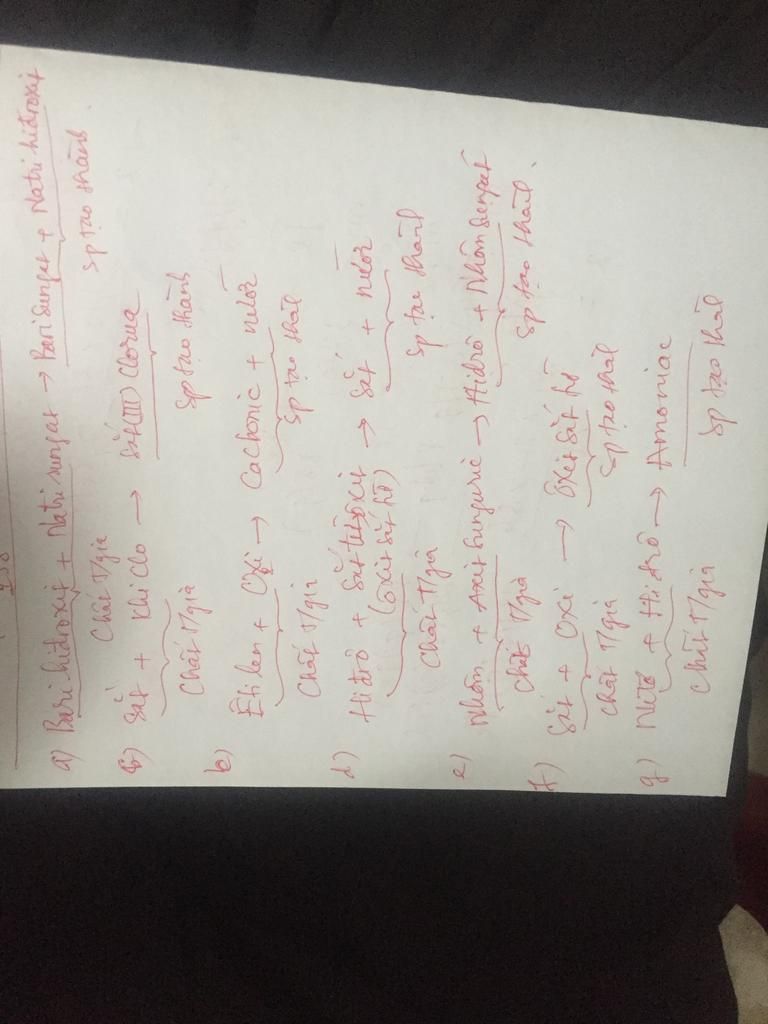 a) Bari hiđroxit + Natri sunfat → Bari sunfat + Natri hiđroxit
Chất T/gia Sp tạo thành
b) Sắt + Khí Clo → Sắt(III) Clorua
Chất T/gia Sp tạo thành
Êtilen + Oxi → Cacbonic + nước
Chất T/gia Sp tạo thành
d) Hiđrô + Sắt từ oxit → Sắt + nước
(oxit sắt từ)
Chất T/gia Sp tạo thành
e) Nhôm + Axit sunfuric → Hiđrô + Nhôm sunfat
Chất T/gia Sp tạo thành
f) Sắt + Oxi → Oxit sắt từ
Chất T/gia Sp tạo thành
g) Nitơ + Hiđrô → Amoniac
Chất T/gia Sp tạo thành